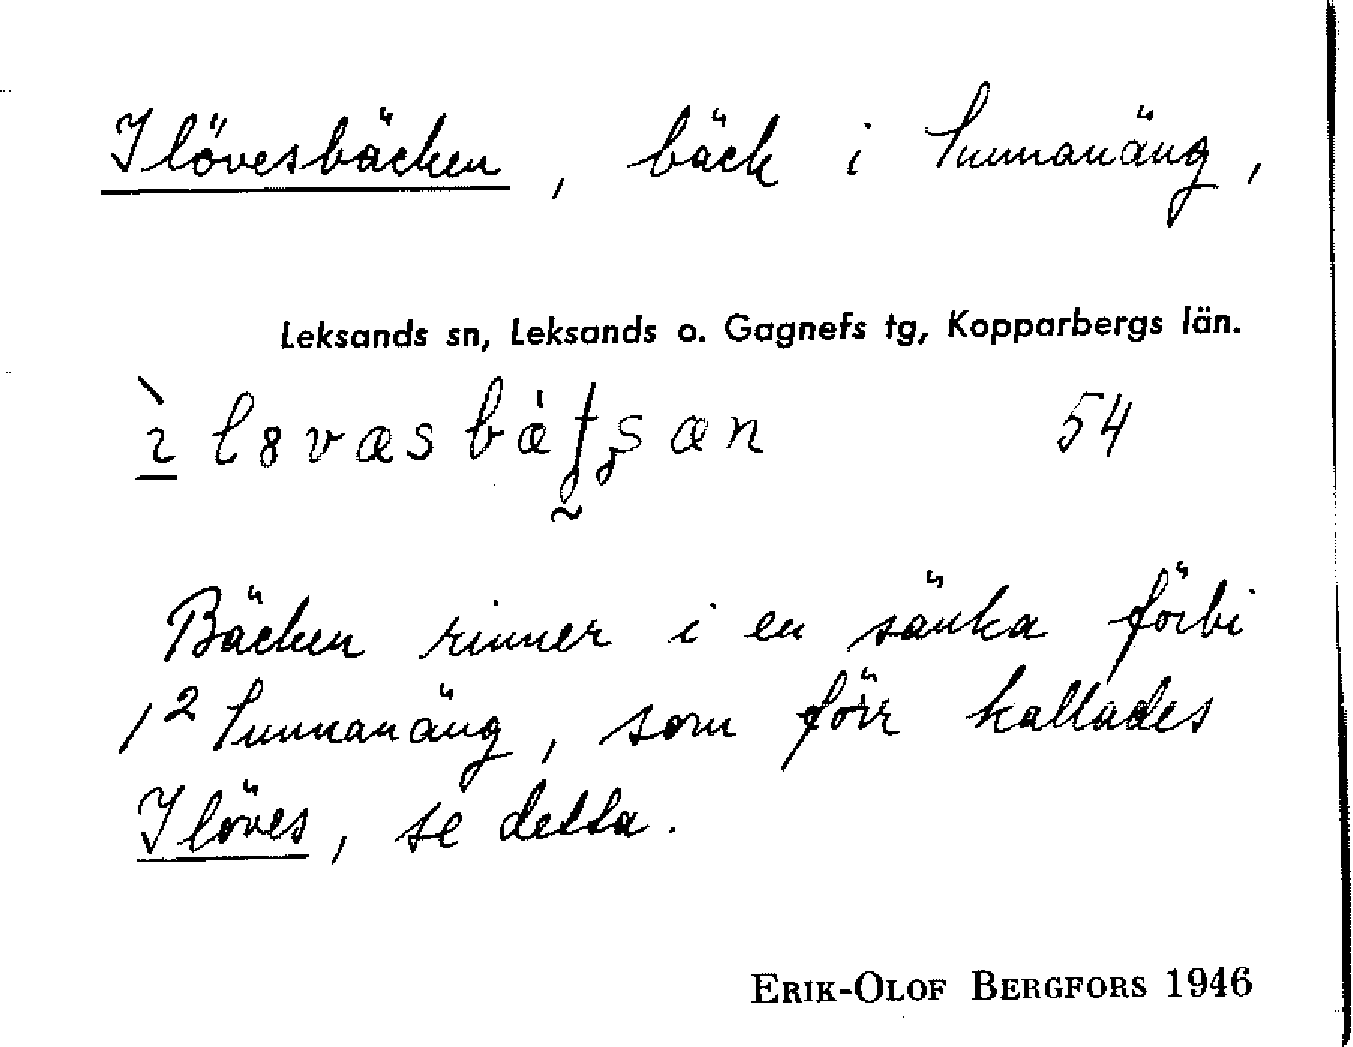 Ilövesbäcken, bäck i Sunnanäng,
Leksands sn, Leksands o. Gagnefs tg, Kopparbergs län.
54
Bäcken rinner i en sänka förbi
/2 Sunnanäng, som förr kallades
Ilöves, se detta.
ERIK-OLOF BERGFORS 1946